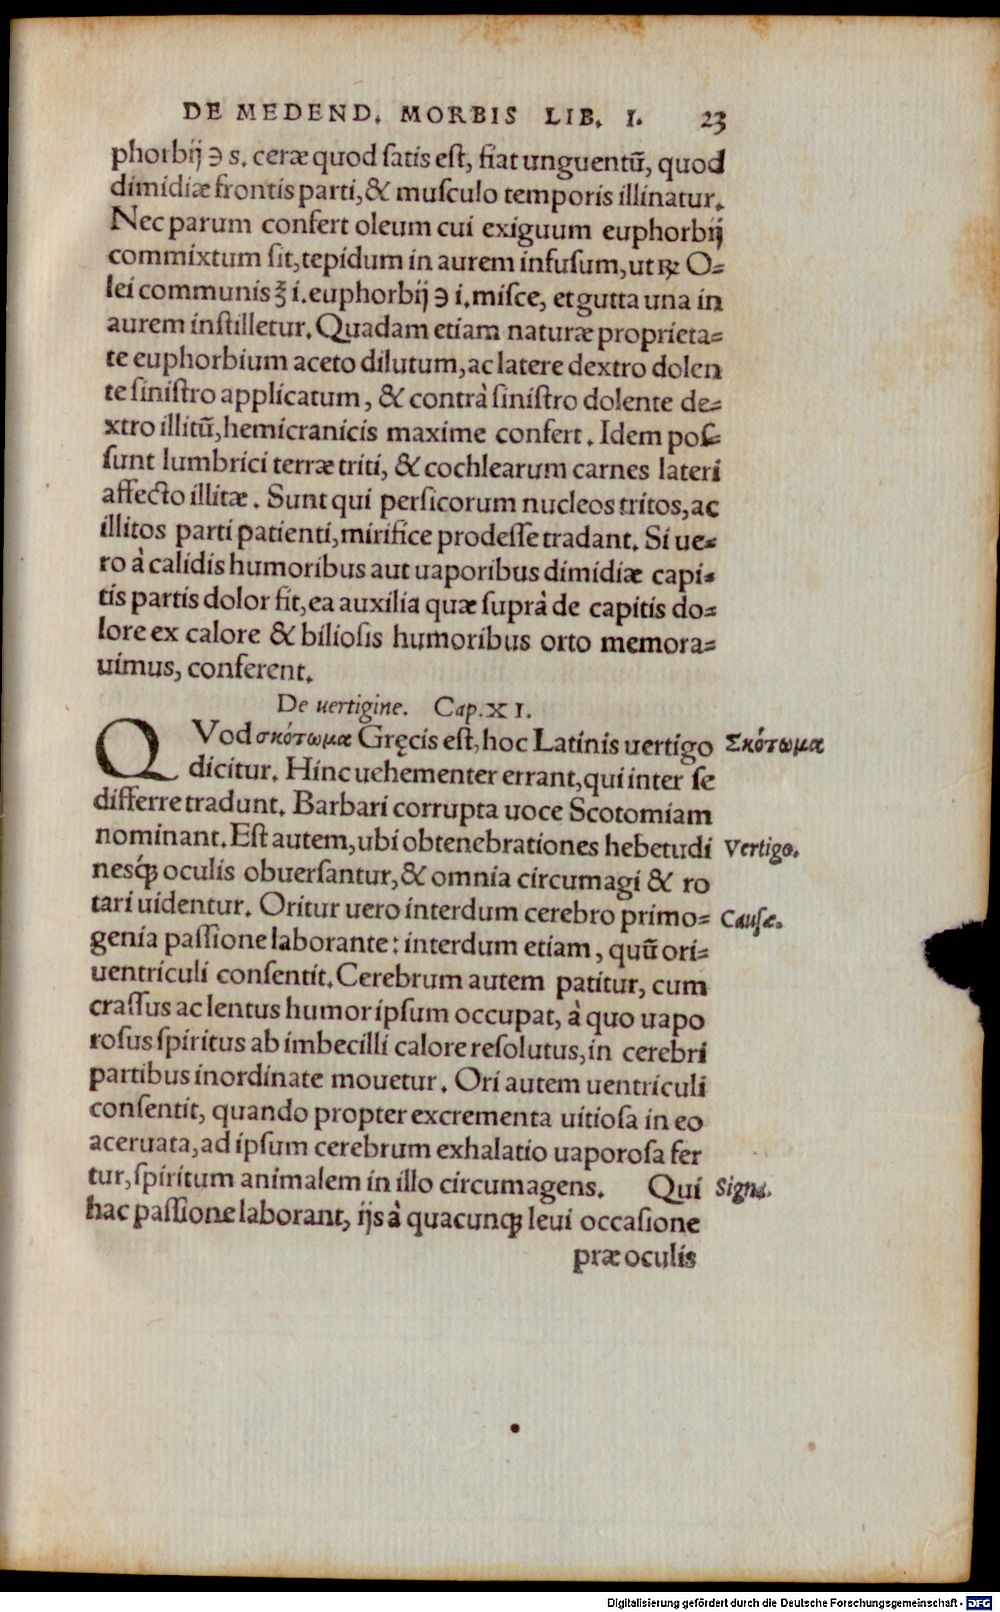 DE MEDEND. MORBIS LIB. I. 23
phorbij ℈ s. ceræ quod satis est, fiat unguentũ, quod
dimidiæ frontis parti, & musculo temporis illinatur.
Nec parum confert oleum cui exiguum euphorbij
commixtum sit, tepidum in aurem infusum, ut ℞ O-
lei communis ℥ i. euphorbij ℈ i. misce, et gutta una in
aurem instilletur. Quadam etiam naturæ proprieta-
te euphorbium aceto dilutum, ac latere dextro dolen
te sinistro applicatum, & contrà sinistro dolente de-
xtro illitũ, hemicranicis maxime confert. Idem pos-
sunt lumbrici terræ triti, & cochlearum carnes lateri
affecto illitæ. Sunt qui persicorum nucleos tritos, ac
illitos parti patienti, mirifice prodesse tradant. Si ue-
ro à calidis humoribus aut uaporibus dimidiæ capi-
tis partis dolor fit, ea auxilia quæ suprà de capitis do-
lore ex calore & biliosis humoribus orto memora-
uimus, conferent.
De uertigine. Cap. XI.
QVod σκότωμα Gręcis est, hoc Latinis uertigo
Σκότωμα
dicitur. Hinc uehementer errant, qui inter se
differre tradunt. Barbari corrupta uoce Scotomiam
nominant. Est autem, ubi obtenebrationes hebetudi
Vertigo.
nesq́; oculis obuersantur, & omnia circumagi & ro
tari uidentur. Oritur uero interdum cerebro primo-
Causæ.
genia passione laborante: interdum etiam, quũ ori-
uentriculi consentit. Cerebrum autem patitur, cum
crassus ac lentus humor ipsum occupat, à quo uapo
rosus spiritus ab imbecilli calore resolutus, in cerebri
partibus inordinate mouetur. Ori autem uentriculi
consentit, quando propter excrementa uitiosa in eo
aceruata, ad ipsum cerebrum exhalatio uaporosa fer
tur, spiritum animalem in illo circumagens. Qui
Signa.
hac passione laborant, ijs à quacunq; leui occasione
præ oculis
Digitalisierung gefördert durch die Deutsche Forschungsgemeinschaft - DFG